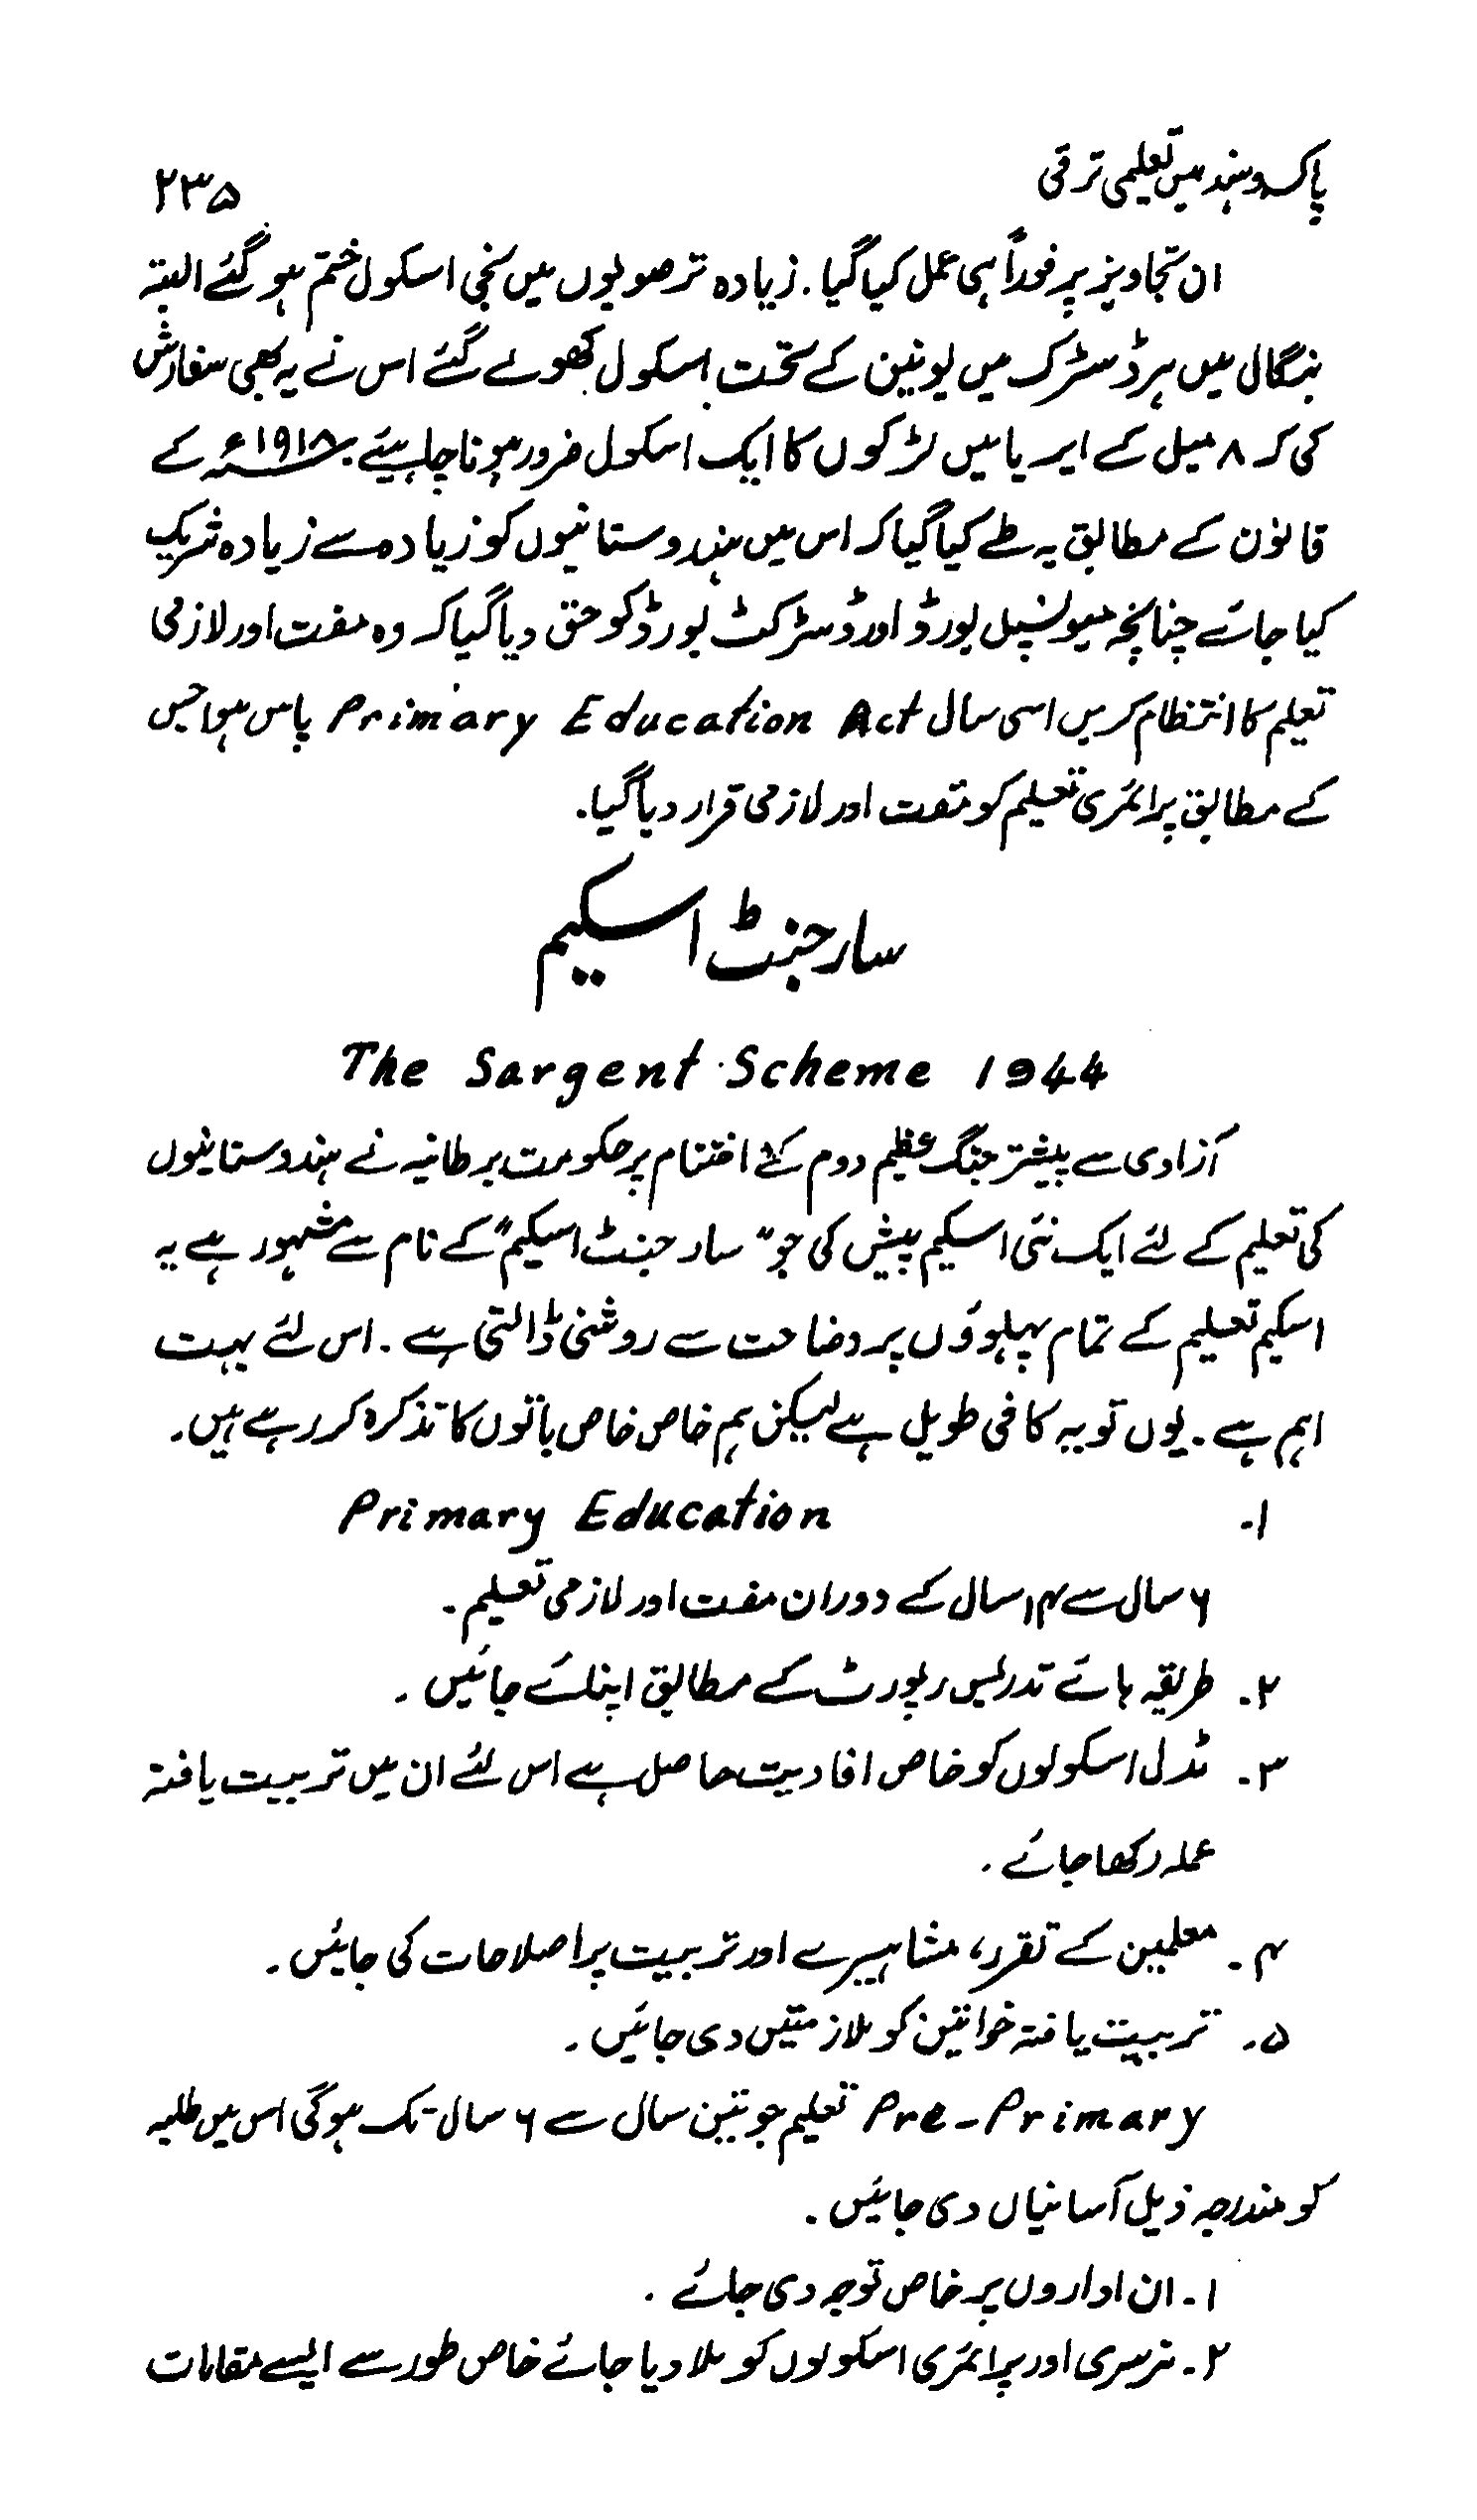 پاک و ہند میں تعلیمی ترقی
۲۳۵
ان تجاویز پر فوراً ہی عمل کیا گیا۔ زیادہ تر صوبوں میں نجی اسکول ختم ہو گئے البتہ
بنگال میں ہر ڈسٹرکٹ میں یونین کے تحت اسکول کھولے گئے اس نے یہ بھی سفارش
کی کہ ۸ میل کے ایریا میں لڑکوں کا ایک اسکول ضرور ہونا چاہیئے۔ ۱۹۱۸ء کے
قانون کے مطابق یہ طے کیا گیا کہ اس میں ہندوستانیوں کو زیادہ سے زیادہ شریک
کیا جائے چنانچہ میونسپل بورڈ اور ڈسٹرکٹ بورڈ کو حق دیا گیا کہ وہ مفت اور لازمی
تعلیم کا انتظام کریں اسی سال Primary Education Act پاس ہوا جس
کے مطابق پرائمری تعلیم کو مفت اور لازمی قرار دیا گیا۔
سارجنٹ اسکیم
The Sargent Scheme 1944
آزادی سے پیشتر جنگ عظیم دوم کے اختتام پر حکومت برطانیہ نے ہندوستانیوں
کی تعلیم کے لئے ایک نئی اسکیم پیش کی جو "سارجنٹ اسکیم" کے نام سے مشہور ہے یہ
اسکیم تعلیم کے تمام پہلوؤں پر وضاحت سے روشنی ڈالتی ہے۔ اس لئے بہت
اہم ہے۔ یوں تو یہ کافی طویل ہے لیکن ہم خاص خاص باتوں کا تذکرہ کر رہے ہیں۔
۱۔ Primary Education
۶ سال سے ۱۴ سال کے دوران مفت اور لازمی تعلیم۔
۲۔ طریقہ ہائے تدریس رپورٹ کے مطابق اپنائے جائیں۔
۳۔ مڈل اسکولوں کو خاص افادیت حاصل ہے اس لئے ان میں تربیت یافتہ
عملہ رکھا جائے۔
۴۔ معلمین کے تقرر، مشاہیرے اور تربیت پر اصلاحات کی جائیں۔
۵۔ تربیت یافتہ خواتین کو ملازمتیں دی جائیں۔
Pre-Primary تعلیم جو تین سال سے ۶ سال تک ہوگی اس میں طلبہ
کو مندرجہ ذیل آسانیاں دی جائیں۔
۱۔ ان اداروں پر خاص توجہ دی جائے۔
۲۔ نرسری اور پرائمری اسکولوں کو ملا دیا جائے خاص طور سے ایسے مقامات